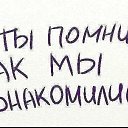 ТЫ ПОМНИ
АК МЫ
ОЗНАКОМИЛИ